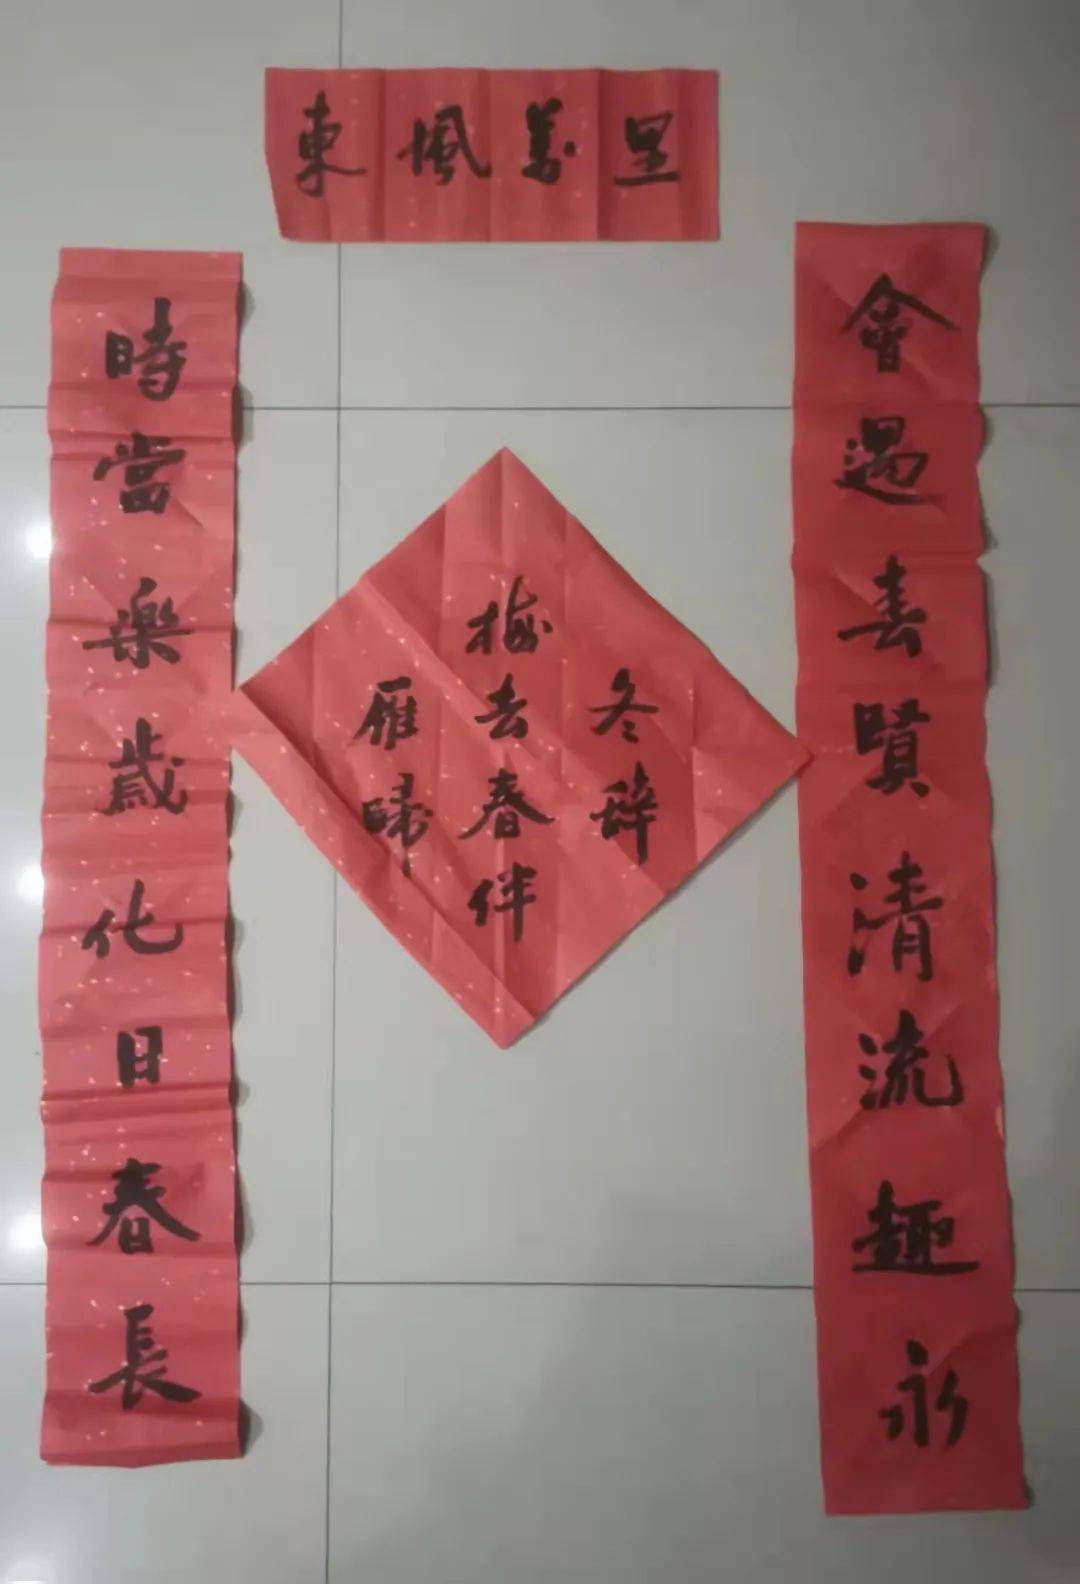 東風萬里
會遇賢清流趣永
時當樂歲化日春長
冬辞
梅去春伴
雁歸